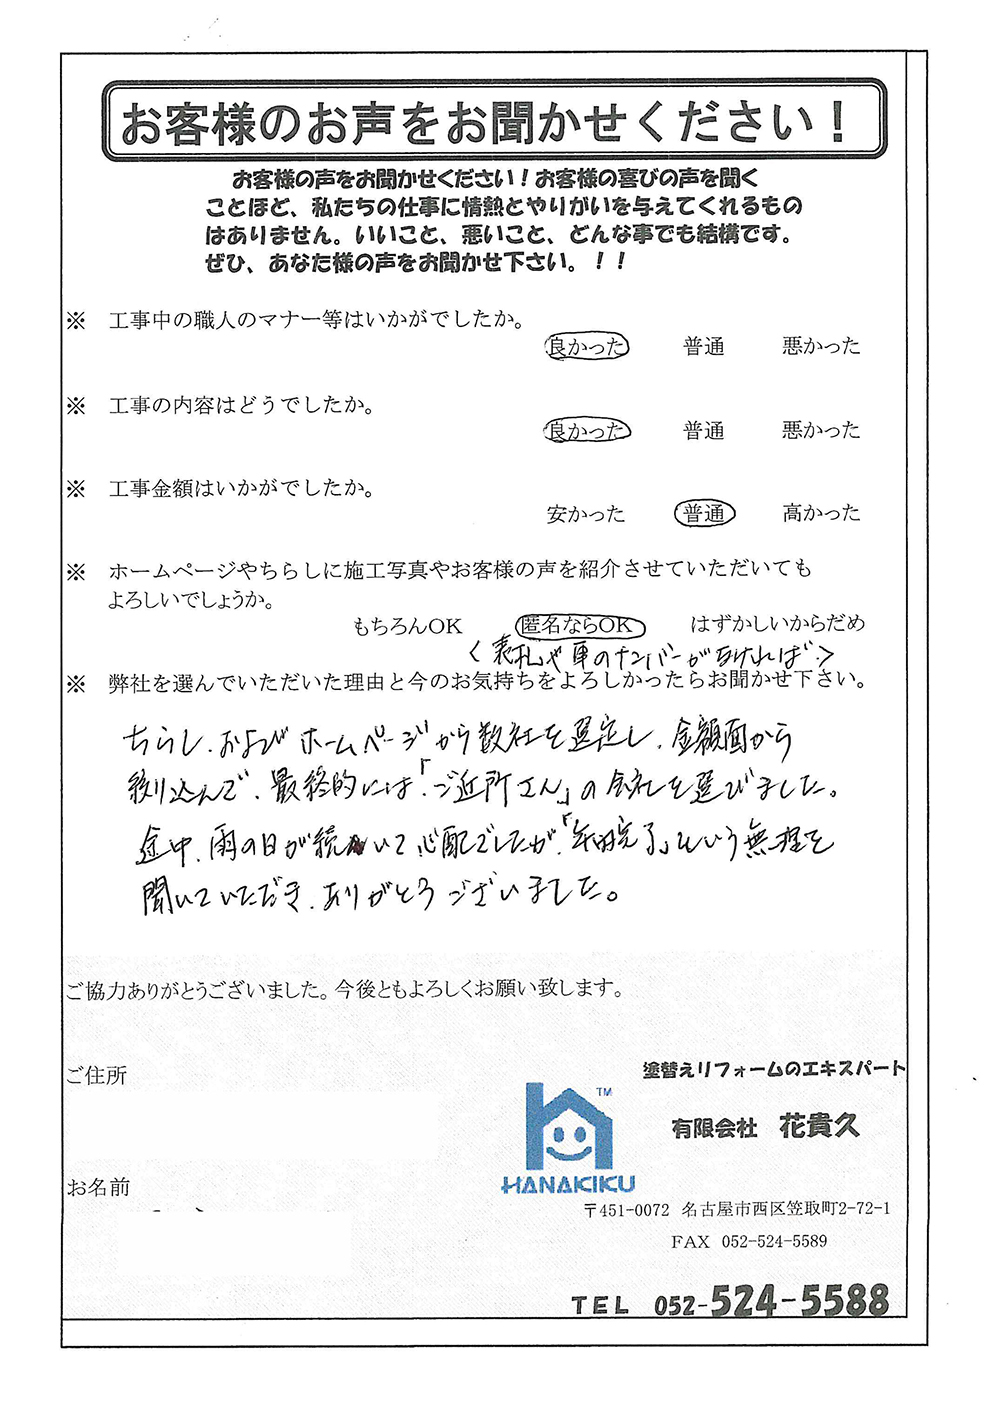 お客様のお声をお聞かせください！
お客様の声をお聞かせください！お客様の喜びの声を聞く
ことほど、私たちの仕事に情熱とやりがいを与えてくれるもの
はありません。いいこと、悪いこと、どんな事でも結構です。
ぜひ、あなた様の声をお聞かせ下さい。！！
※ 工事中の職人のマナー等はいかがでしたか。
良かった 普通 悪かった
※ 工事の内容はどうでしたか。
良かった 普通 悪かった
※ 工事金額はいかがでしたか。
安かった 普通 高かった
※ ホームページやちらしに施工写真やお客様の声を紹介させていただいても
よろしいでしょうか。
もちろんOK 匿名ならOK はずかしいからだめ
〈表札や車のナンバーがなければ〉
※ 弊社を選んでいただいた理由と今のお気持ちをよろしかったらお聞かせ下さい。
ちらし、およびホームページから数社を選定し、金額面から
絞り込んで、最終的には「ご近所さん」の会社を選びました。
途中、雨の日が続いて心配でしたが、「年内完了」という無理を
聞いていただき、ありがとうございました。
ご協力ありがとうございました。今後ともよろしくお願い致します。
ご住所
塗替えリフォームのエキスパート
TM
有限会社 花貴久
HANAKIKU
お名前
〒451-0072 名古屋市西区笠取町2-72-1
FAX 052-524-5589
TEL 052-524-5588